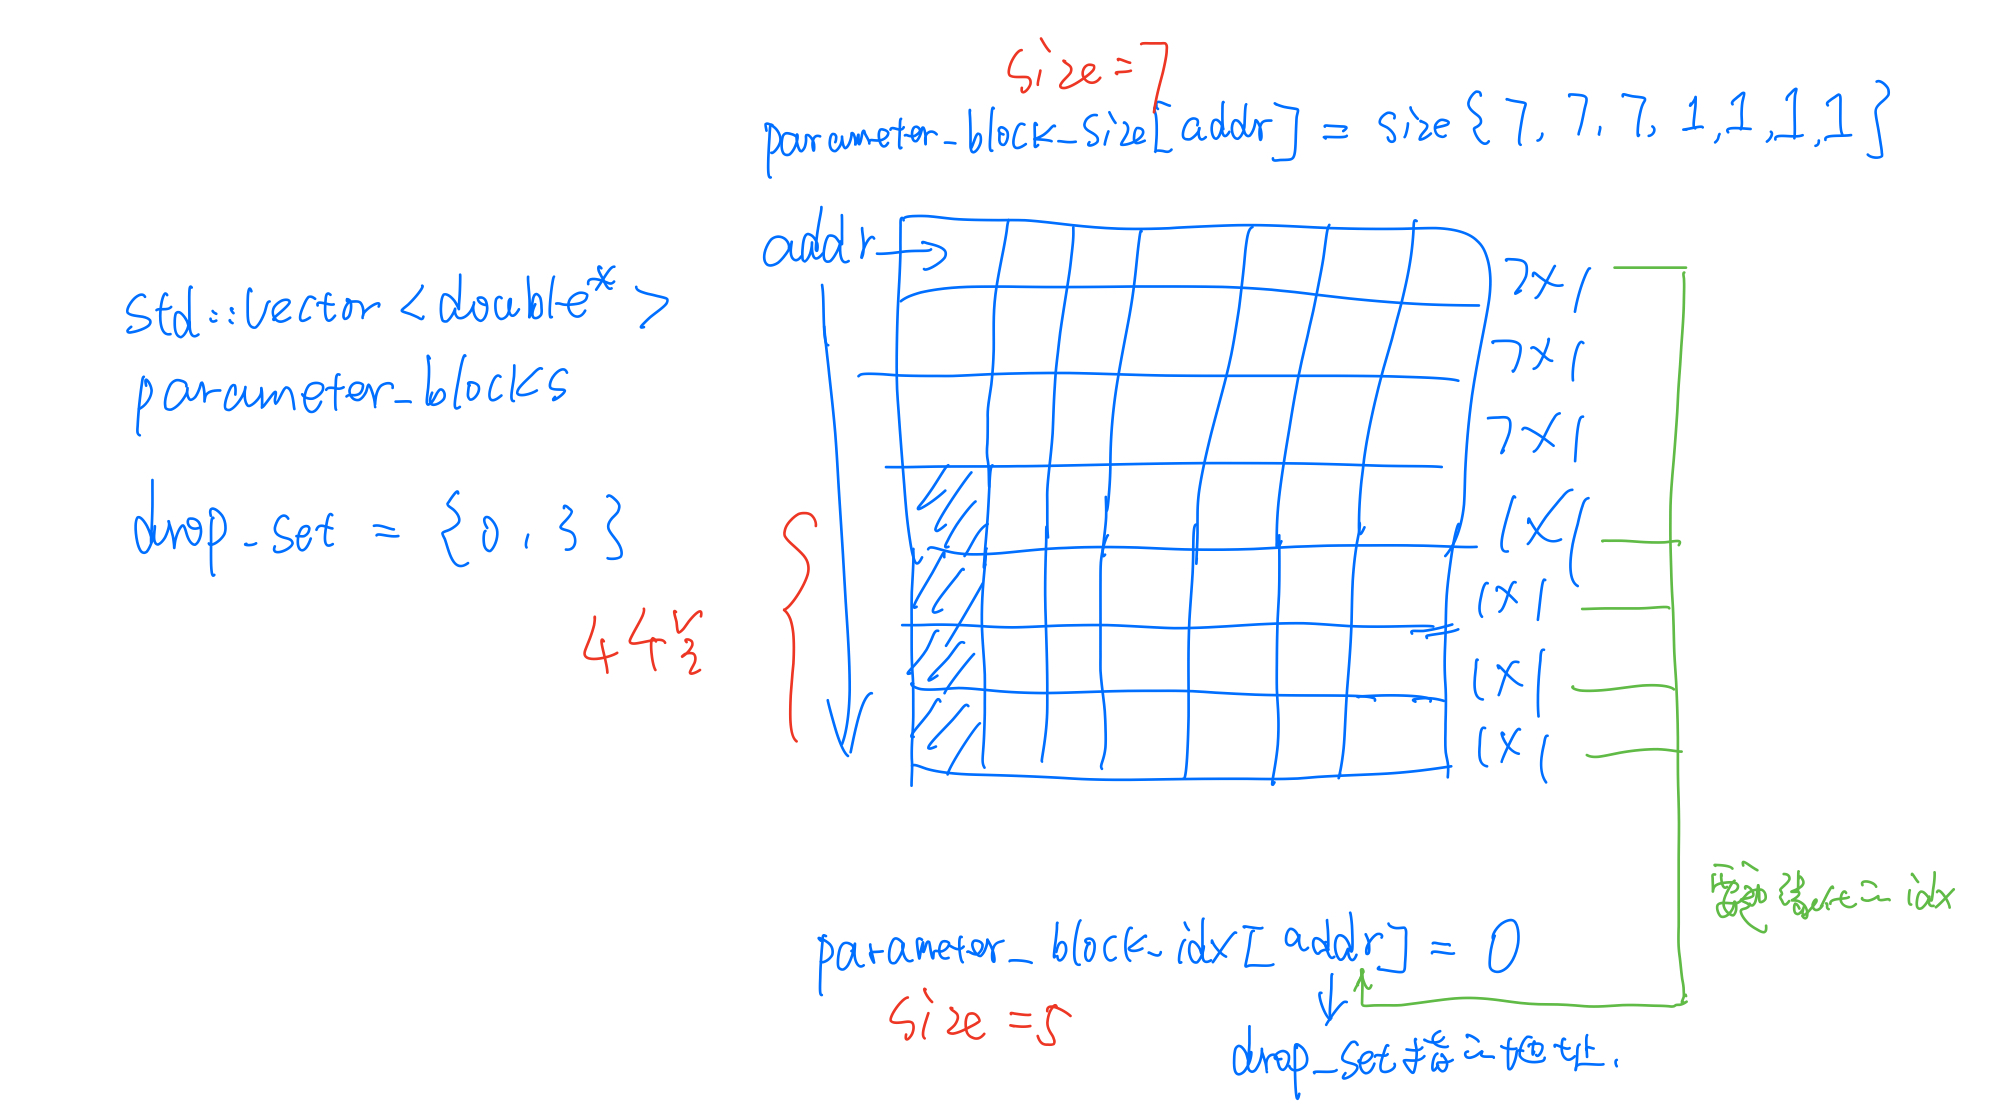 size=7
parameter_block_size[addr] = size{7,7,7,1,1,1,1}
addr
std::vector<double*>
parameter_blocks
drop_set = {0,3}
7×1
7×1
7×1
1×1
1×1
1×1
1×1
idx
parameter_block_idx[addr] = 0
size=5
drop_set